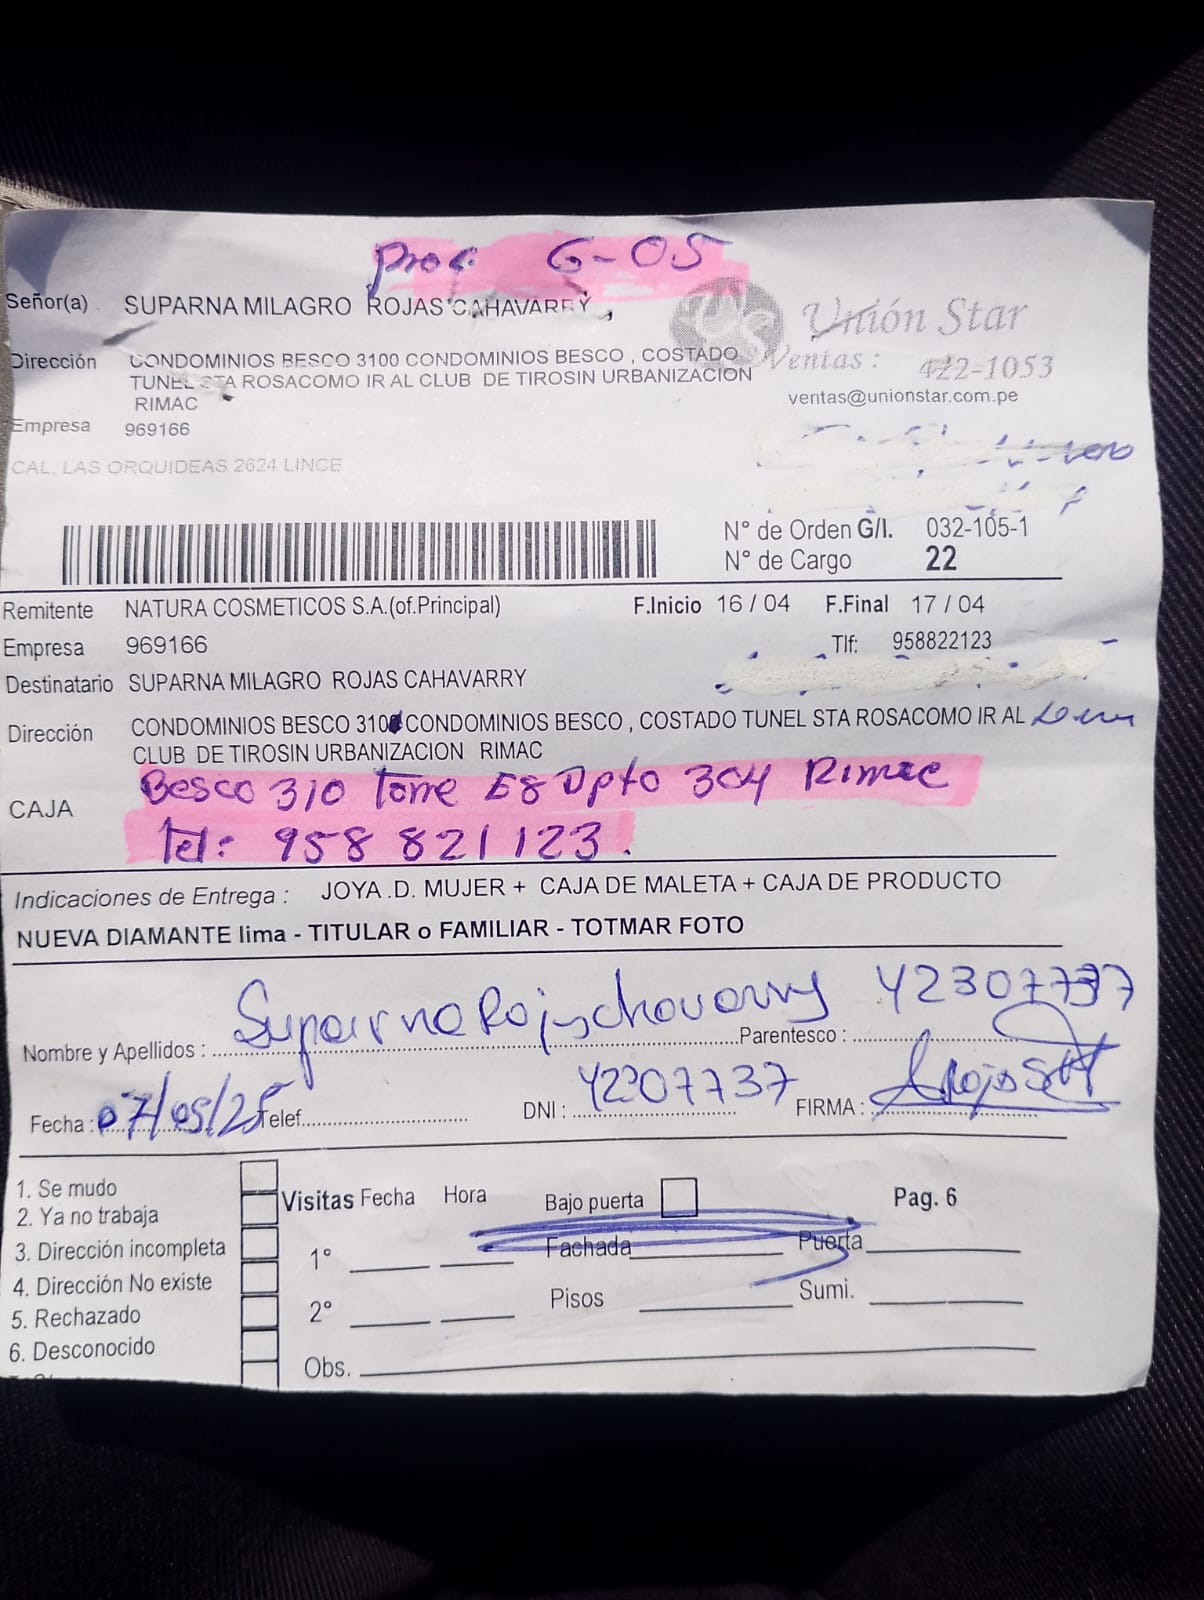 Proc. G-05
Señor(a) . SUPARNA MILAGRO ROJAS CAHAVARRY
Unión Star
Dirección CONDOMINIOS BESCO 3100 CONDOMINIOS BESCO , COSTADO
TUNEL STA ROSACOMO IR AL CLUB DE TIROSIN URBANIZACION
RIMAC
Ventas : 422-1053
ventas@unionstar.com.pe
Empresa 969166
CAL. LAS ORQUIDEAS 2624 LINCE
N° de Orden G/I. 032-105-1
N° de Cargo 22
Remitente NATURA COSMETICOS S.A.(of.Principal) F.Inicio 16 / 04 F.Final 17 / 04
Empresa 969166 Tlf: 958822123
Destinatario SUPARNA MILAGRO ROJAS CAHAVARRY
Dirección CONDOMINIOS BESCO 3100 CONDOMINIOS BESCO , COSTADO TUNEL STA ROSACOMO IR AL
CLUB DE TIROSIN URBANIZACION RIMAC
CAJA Besco 310 Torre E8 Dpto 304 Rimac
Tel: 958 821 123.
Indicaciones de Entrega : JOYA .D. MUJER + CAJA DE MALETA + CAJA DE PRODUCTO
NUEVA DIAMANTE lima - TITULAR o FAMILIAR - TOTMAR FOTO
Suparna Rojas chavarry 42307737
Nombre y Apellidos : Parentesco :
Fecha : 07/05/25 Telef. DNI : 42307737 FIRMA :
1. Se mudo
2. Ya no trabaja
3. Dirección incompleta
4. Dirección No existe
5. Rechazado
6. Desconocido
Visitas Fecha Hora Bajo puerta Pag. 6
1° Fachada Puerta
2° Pisos Sumi.
Obs.